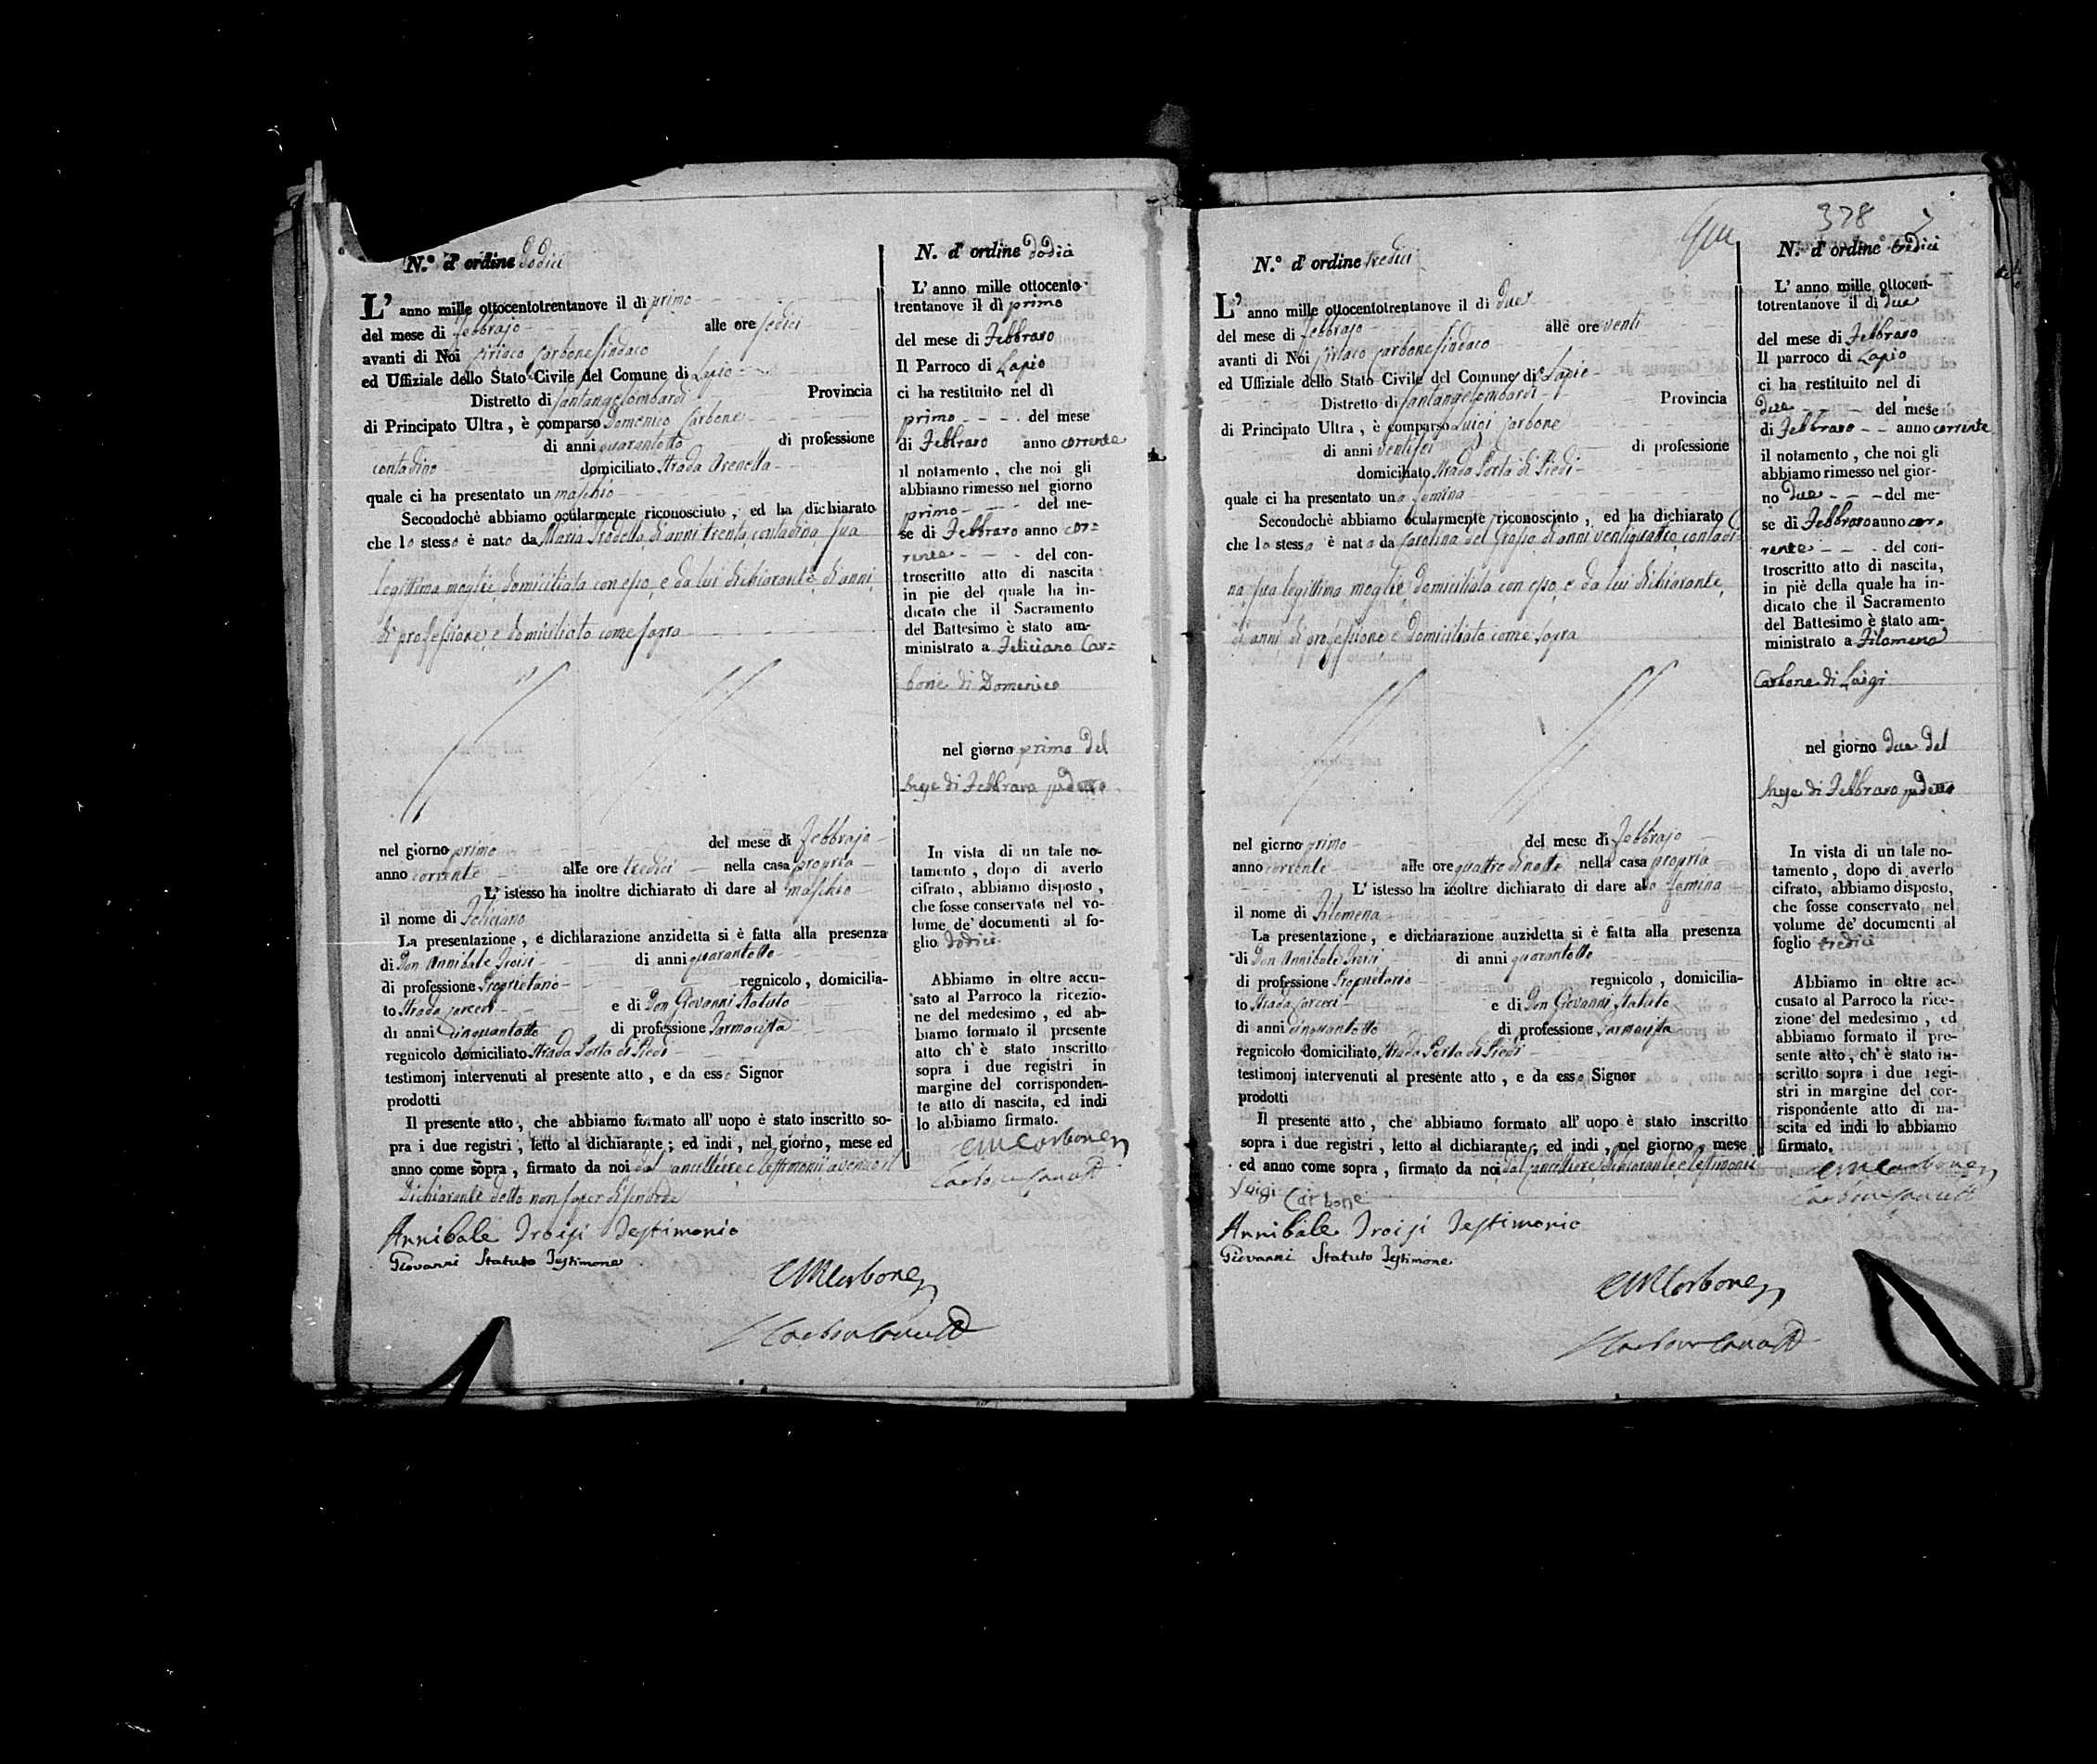 N.° d' ordine dodici
L' anno mille ottocentotrentanove il dì primo
del mese di Febbrajo alle ore sedici
avanti di Noi Ciriaco Carbone Sindaco
ed Uffiziale dello Stato Civile del Comune di Lapio
Distretto di Santangelombardi Provincia
di Principato Ultra, è comparso Domenico Carbone
di anni quarantotto di professione
contadino domiciliato Strada Arenella
quale ci ha presentato un maschio
Secondochè abbiamo ocularmente riconosciuto, ed ha dichiarato
che lo stesso è nato da Maria di anni trenta contadina sua
legittima moglie domiciliata con esso, e da lui dichiarante, di anni,
di professione, e domiciliato come sopra
nel giorno primo del mese di Febbrajo
anno corrente alle ore tredici nella casa propria
L' istesso ha inoltre dichiarato di dare al maschio
il nome di Feliciano
La presentazione, e dichiarazione anzidetta si è fatta alla presenza
di Don Annibale Troisi di anni quarantotto
di professione Proprietario regnicolo, domicilia-
to Strada Carceri e di Don Giovanni Statuto
di anni cinquantotto di professione Farmacista
regnicolo domiciliato Strada Porta di Piedi
testimonj intervenuti al presente atto, e da esso Signor
prodotti
Il presente atto, che abbiamo formato all' uopo è stato inscritto so-
pra i due registri, letto al dichiarante; ed indi, nel giorno, mese ed
anno come sopra, firmato da noi dal Cancelliere e testimonii avendo il
Dichiarante detto non saper scrivere
Annibale Troisi Testimonio
Giovanni Statuto Testimone
Carbone
N. d' ordine dodici
L' anno mille ottocento-
trentanove il dì primo
del mese di Febbraro
Il Parroco di Lapio
ci ha restituito nel dì
primo del mese
di Febbraro anno corrente
il notamento, che noi gli
abbiamo rimesso nel giorno
primo del me-
se di Febbraro anno cor=
rente del con-
troscritto atto di nascita
in piè del quale ha in-
dicato che il Sacramento
del Battesimo è stato am-
ministrato a Feliciano Car=
bone di Domenico
nel giorno primo del
mese di Febbraro
In vista di un tale no-
tamento, dopo di averlo
cifrato, abbiamo disposto,
che fosse conservato nel vo-
lume de' documenti al fo-
glio dodici
Abbiamo in oltre accu-
sato al Parroco la ricezio-
ne del medesimo, ed ab-
biamo formato il presente
atto ch' è stato inscritto
sopra i due registri in
margine del corrisponden-
te atto di nascita, ed indi
lo abbiamo firmato.
Carbone
378
N.° d' ordine tredici
L' anno mille ottocentotrentanove il dì due
del mese di Febbrajo alle ore venti
avanti di Noi Ciriaco Carbone Sindaco
ed Uffiziale dello Stato Civile del Comune di Lapio
Distretto di Santangelombardi Provincia
di Principato Ultra, è comparso Luigi Carbone
di anni ventisei di professione
domiciliato Strada Porta di Piedi
quale ci ha presentato una femina
Secondochè abbiamo ocularmente riconosciuto, ed ha dichiarato
che la stessa è nata da Carolina del Grosso di anni ventiquattro contadi-
na sua legittima moglie, domiciliata con esso, e da lui dichiarante,
di anni di professione e domiciliato come sopra
nel giorno primo del mese di Febbrajo
anno corrente alle ore quattro di notte nella casa propria
L' istesso ha inoltre dichiarato di dare alla femina
il nome di Filomena
La presentazione, e dichiarazione anzidetta si è fatta alla presenza
di Don Annibale Troisi di anni quarantotto
di professione Proprietario regnicolo, domicilia-
to Strada Carceri e di Don Giovanni Statuto
di anni cinquantotto di professione Farmacista
regnicolo domiciliato Strada Porta di Piedi
testimonj intervenuti al presente atto, e da esso Signor
prodotti
Il presente atto, che abbiamo formato all' uopo è stato inscritto
sopra i due registri, letto al dichiarante; ed indi, nel giorno, mese
ed anno come sopra, firmato da noi dal Cancelliere, dichiarante e testimonii
Luigi Carbone
Annibale Troisi Testimonio
Giovanni Statuto Testimone
Carbone
N. d' ordine tredici
L' anno mille ottocen-
totrentanove il dì due
del mese di Febbraro
Il parroco di Lapio
ci ha restituito nel di
due del mese
di Febbraro anno corrente
il notamento, che noi gli
abbiamo rimesso nel gior-
no due del me-
se di Febbraro anno cor=
rente del con-
troscritto atto di nascita,
in piè della quale ha in-
dicato che il Sacramento
del Battesimo è stato am-
ministrato a Filomena
Carbone di Luigi
nel giorno due del
mese di Febbraro
In vista di un tale no-
tamento, dopo di averlo
cifrato, abbiamo disposto,
che fosse conservato nel
volume de' documenti al
foglio tredici
Abbiamo in oltre ac-
cusato al Parroco la rice-
zione del medesimo, ed
abbiamo formato il pre-
sente atto, ch' è stato in-
scritto sopra i due regi-
stri in margine del cor-
rispondente atto di na-
scita ed indi lo abbiamo
firmato.
Carbone